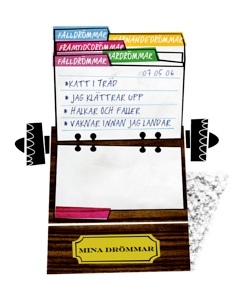 FALLDRÖMMAR
FRAMTIDSDRÖMMAR
FALLDRÖMMAR
07 05 06
*KATT I TRÄD
*JAG KLÄTTRAR UPP
*HALKAR OCH FALLER
*VAKNAR INNAN JAG LANDAR
MINA DRÖMMAR